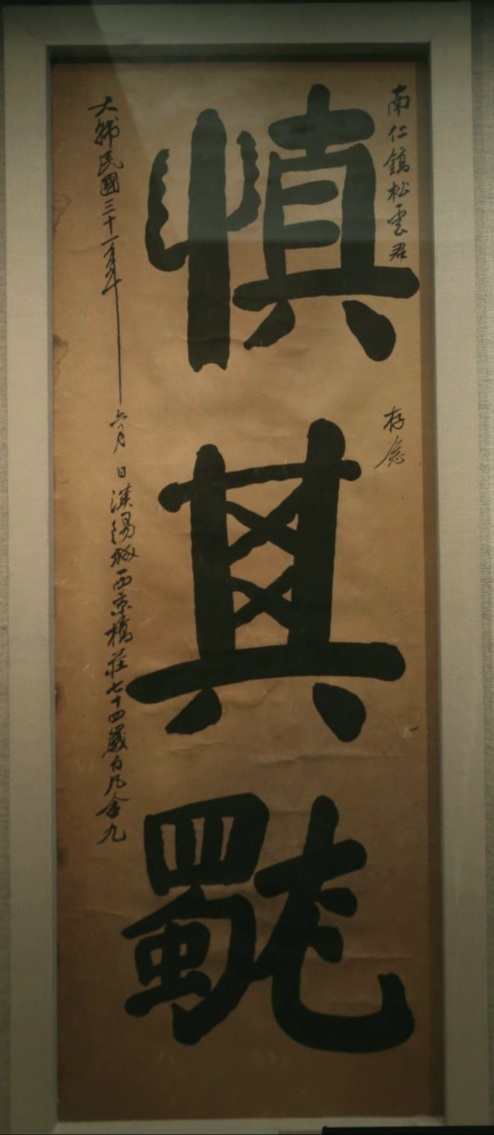 南仁鎬松雲君 存念
慎其獨
大韓民國三十一年六月 日漢陽城西京橋莊七十四歲白凡金九